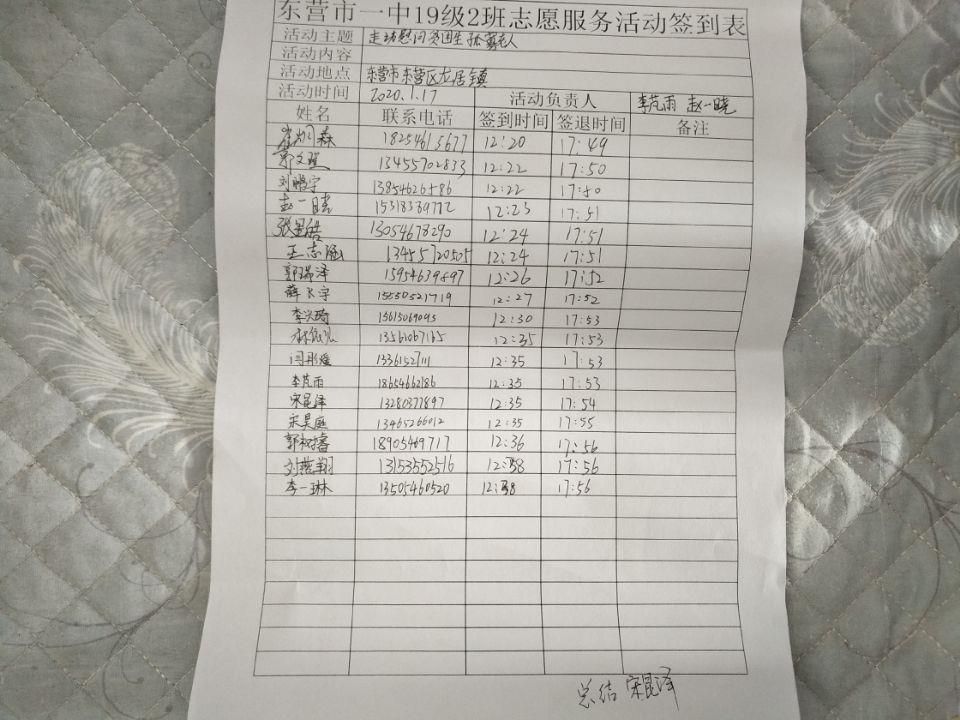 东营市一中19级2班志愿服务活动签到表
活动主题 走访慰问 老人
活动内容
活动地点 东营市东营区龙居镇
活动时间 2020.1.17 活动负责人 李芃雨 赵一晓
姓名 联系电话 签到时间 签退时间 备注
森 18254615677 12:20 17:49
郭文 13455702833 12:22 17:50
刘腾宇 13854626586 12:22 17:50
赵一晓 15318389772 12:23 17:51
张 皓 13054678290 12:24 17:51
王志涵 13455720505 12:24 17:51
郭瑞泽 15954639897 12:26 17:52
薛飞宇 15550521719 12:27 17:52
李兴琦 15615069093 12:30 17:53
13561067165 12:35 17:53
闫彤瑶 13361527111 12:35 17:53
李芃雨 18654662186 12:35 17:53
宋昆泽 13280377897 12:35 17:54
宋昊庭 13465266012 12:35 17:55
郭树睿 18905469717 12:36 17:56
刘燕翔 13153552516 12:38 17:56
李一琳 13505460520 12:38 17:56
总结 宋昆泽